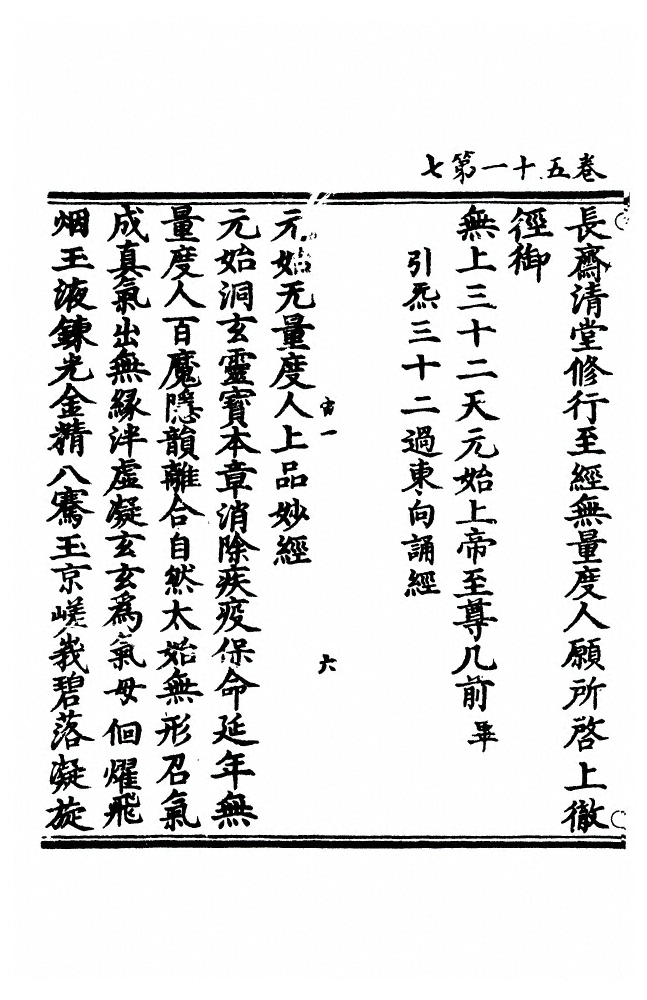 卷五十一第七
長齋清堂修行至經無量度人願所啓上徹
徑御
無上三十二天元始上帝至尊几前畢
引炁三十二過東向誦經
宙一
六
元始无量度人上品妙經
元始洞玄靈寶本章消除疾疫保命延年無
量度人百魔隱韻離合自然太始無形召氣
成真氣出無緣泮虛凝玄玄為氣母佪燿飛
烟玉液鍊光金精八騫玉京嵯峩碧落凝旋